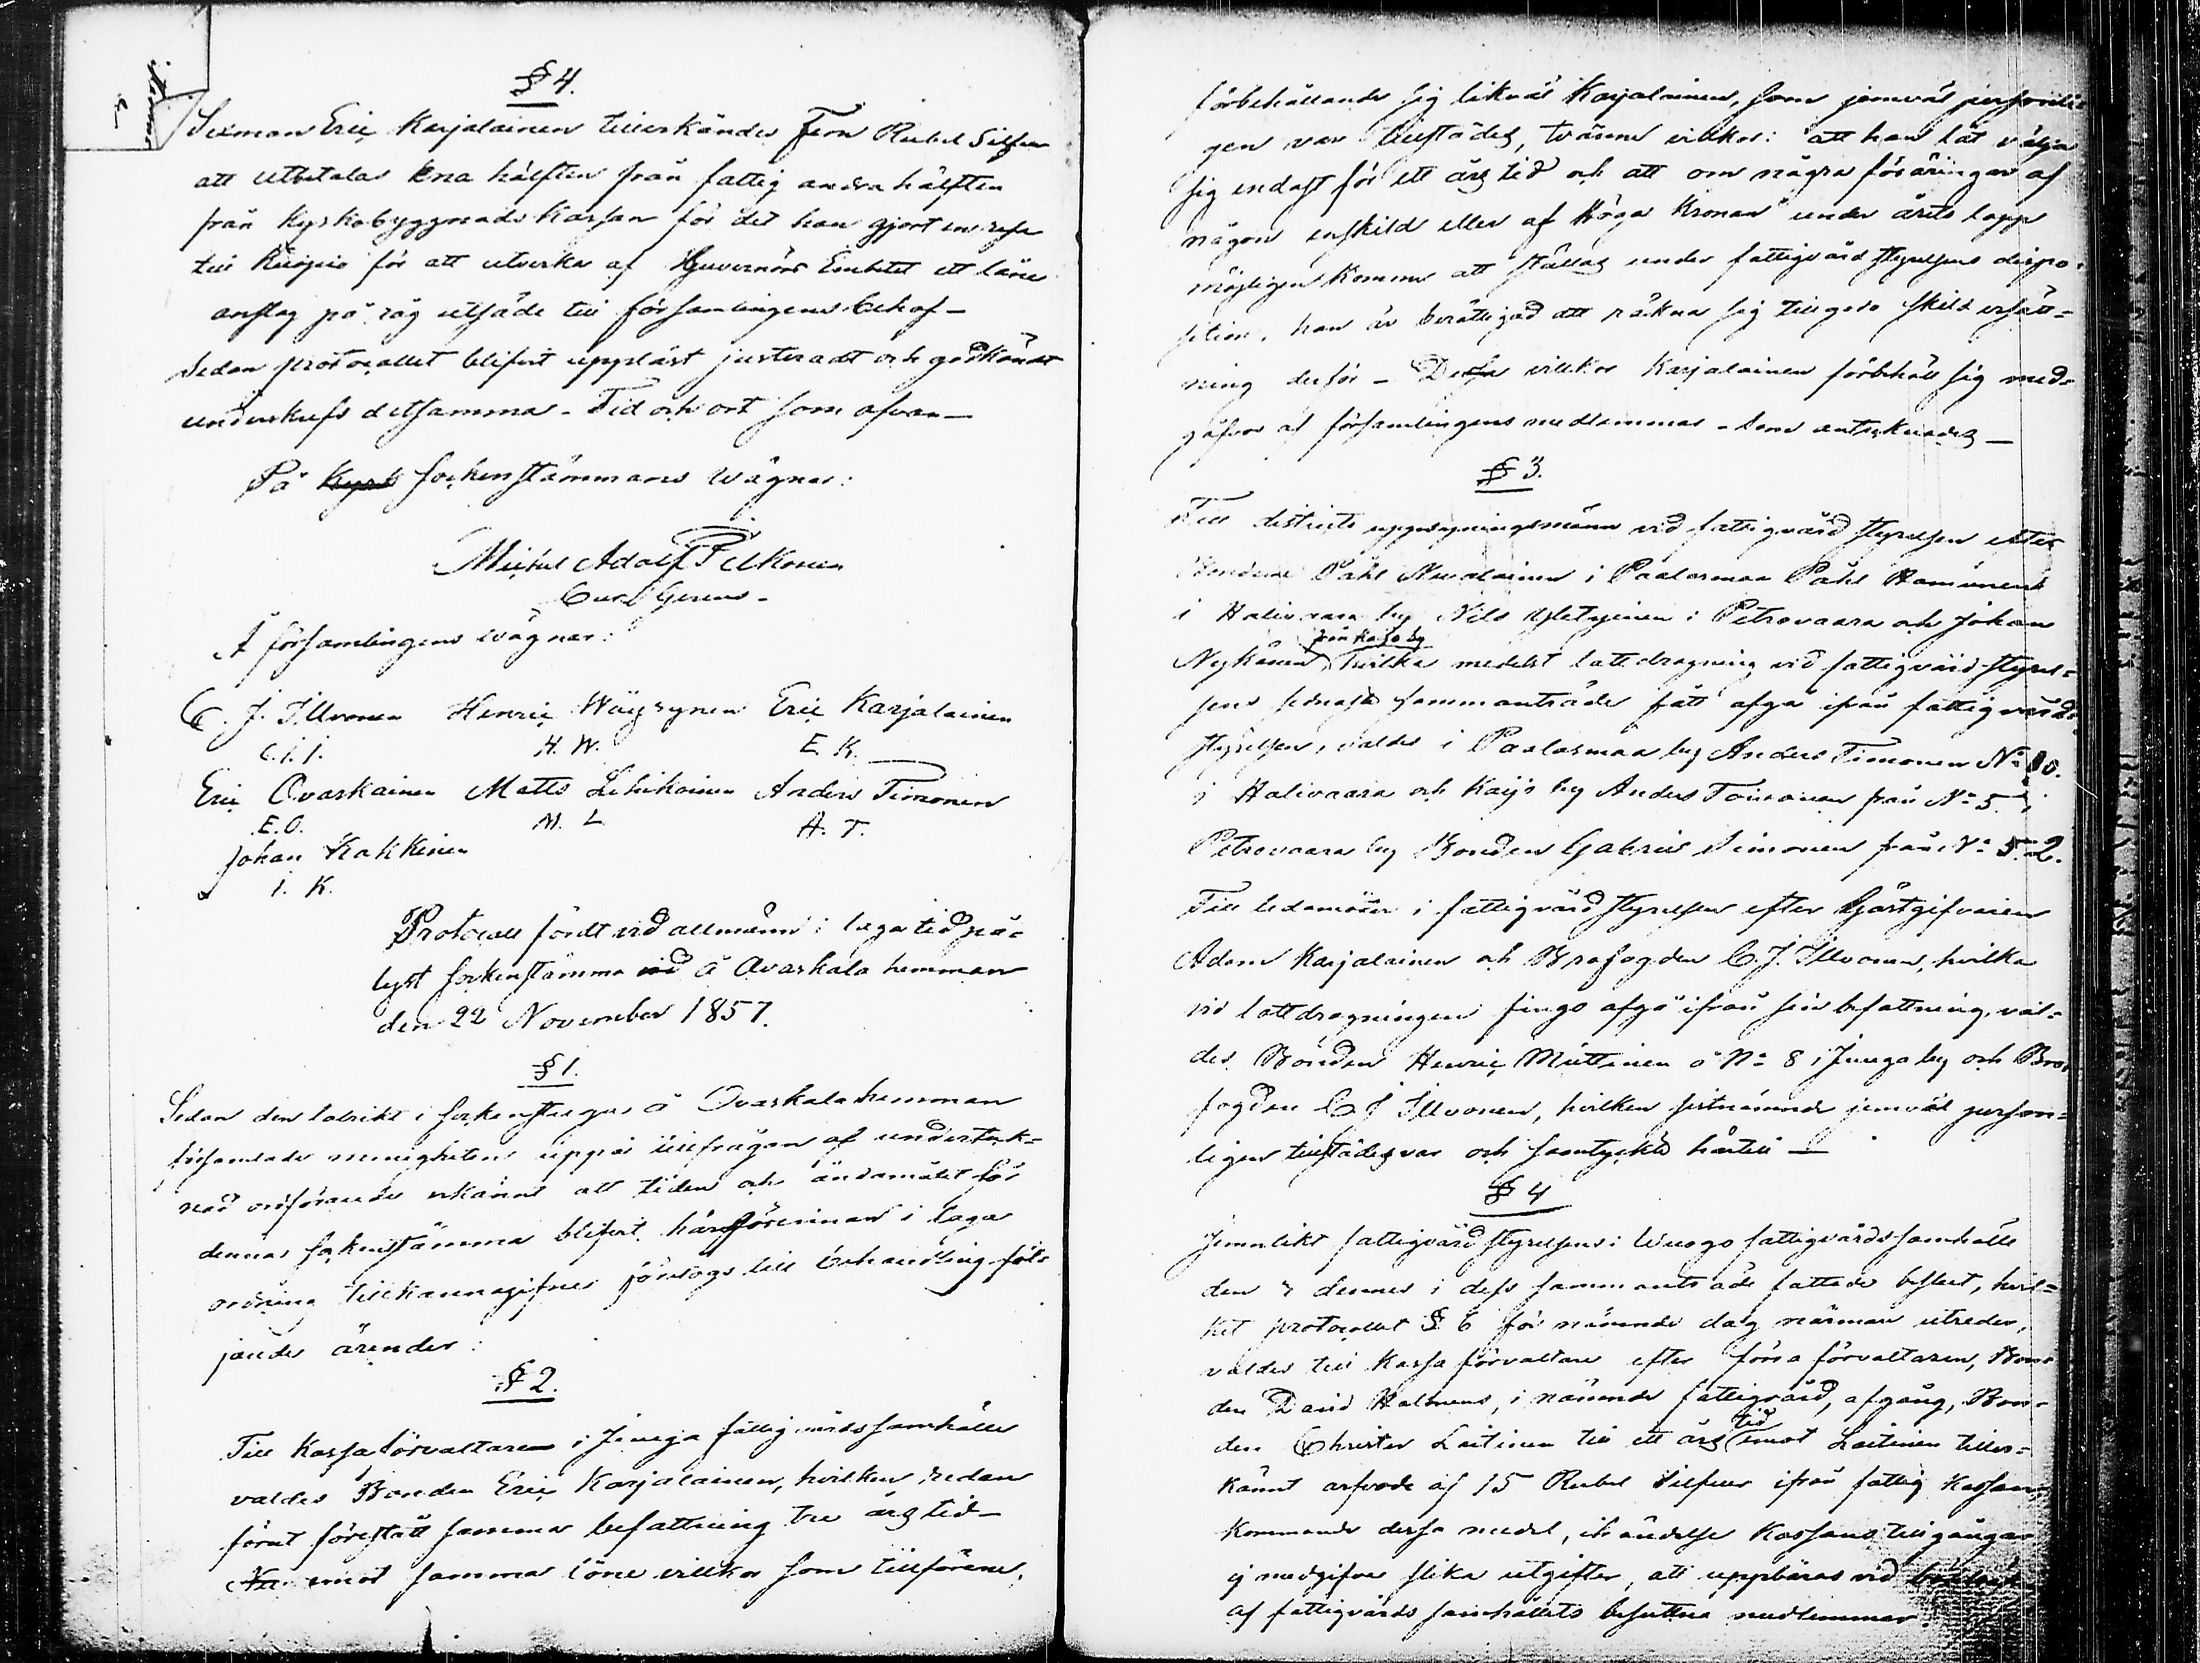 § 4.
Seximan Eric Karjalainen tillerkändes Fem Rubel Silfver
att utbetalas Ena hälften från fattig andra hälften
från Kyrkobyggnads Kassan för det han gjort en resa
till Kuopio för att utverka af Guvernörs Embetet ett låne
anslag på råg utsäde till församlingens behof —
Sedan protocollet blifvit uppläst justeradt och godkändt
underskrefs detsamma — Tid och ort som ofvan —
På Kyrk sockenstämmans wägnar:
Michel Adolf Pelkonen
Å församlingens wägnar:
C. J. Illvonen Henric Wäyrynen Eric Karjalainen
C.I.I. H. W. E. K.
Eric Ovaskainen Matts Lehikoinen Anders Timonen
E.O. M. L. A. T.
Johan Kakkinen
I. K.
Protocoll fördt vid allmänn i laga tid på=
lyst sockenstämma vid å Ovaskala hemman
den 22 November 1857.
§ 1.
Sedan den talrikt i sockenstugan å Ovaskala hemman
församlade menigheten uppå tillfrågan af underteck=
nad ordförande erkännt att tiden och ändamålet för
denna sockenstämma blifvit härförinnan i laga
ordning tillkännagifne företogs till behandling föl=
jande ärender:
§ 2.
Till Kassaförvaltaren i Juuga fattigvårdssamhälle
valdes Bonden Eric Karjalainen, hvilken redan
förut förestått samma befattning tre års tid —
emot samma löne villkor som tillförene,
förbehållande sig likväl Karjalainen, som jemväl personli=
gen var tillstädes, tvänne villkor: att han låt välja
sig endast för ett års tid och att om några föräringar af
någon enskild eller af Höga Kronan under årets lopp
möjligen komme att ställas under fattigvårdstyrelsens dispo=
sition, han är berättigad att räkna sig tillgodo skild ersätt=
ning derför — Dessa villkor Karjalainen förbehöll sig med=
gåfvos af församlingens medlemmar — som antecknades —
§ 3.
Till districts uppsyningsmänn vid fattigvårdstyrelsen efter
Bonderne Påhl Nevalainen i Paalasmaa Påhl Hämünen
i Halivaara by Nils Yletyinen i Petrovaara och Johan
från Kajo by
Nykänen, hvilka medelst lottdragning vid fattigvårdstyrel=
sens senaste sammanträde fått afgå ifrån fattigvårds
styrelsen, valdes i Paalasmaa by Anders Timonen N:o 10.
i Halivaara och Kaijo by Anders Toivanen från N:o 5. i
Petrovaara by Bonden Gabriel Simonen från N:o 2.
Till ledamöter i fattigvårdstyrelsen efter Gästgifvaren
Adam Karjalainen och Brofogden C. J. Illvonen, hvilka
vid lottdragningen fingo afgå ifrån sin befattning, val=
des Bonden Henric Müttinen å N:o 8 i Juuga by och Bro=
fogden C J Illvonen, hvilken sistnämnde jemväl person=
ligen tillstädes var och samtyckte härtill —
§ 4
Jemnlikt fattigvårdstyrelsens i Wuogo fattigvårdssamhälle
den dennes i dess sammanträde fattade beslut, hvil=
ket protocollet § 6 för nämnde dag närmare utreder,
valdes till Kassa förvaltare efter förra förvaltaren, Bon=
den David Halmens, i nämnde fattigvård, afgång, Bon=
tid
den Christer Laitinen till ett års emot Laitinen tiller=
kännt arfvode af 15 Rubel Silfver ifrån fattig Kassan,
Kommande dessa medel, i händelse Kassans tillgångar
ej medgifva slika utgifter, att uppbäras vid
af fattigvårds samhällets besuttna medlemmar